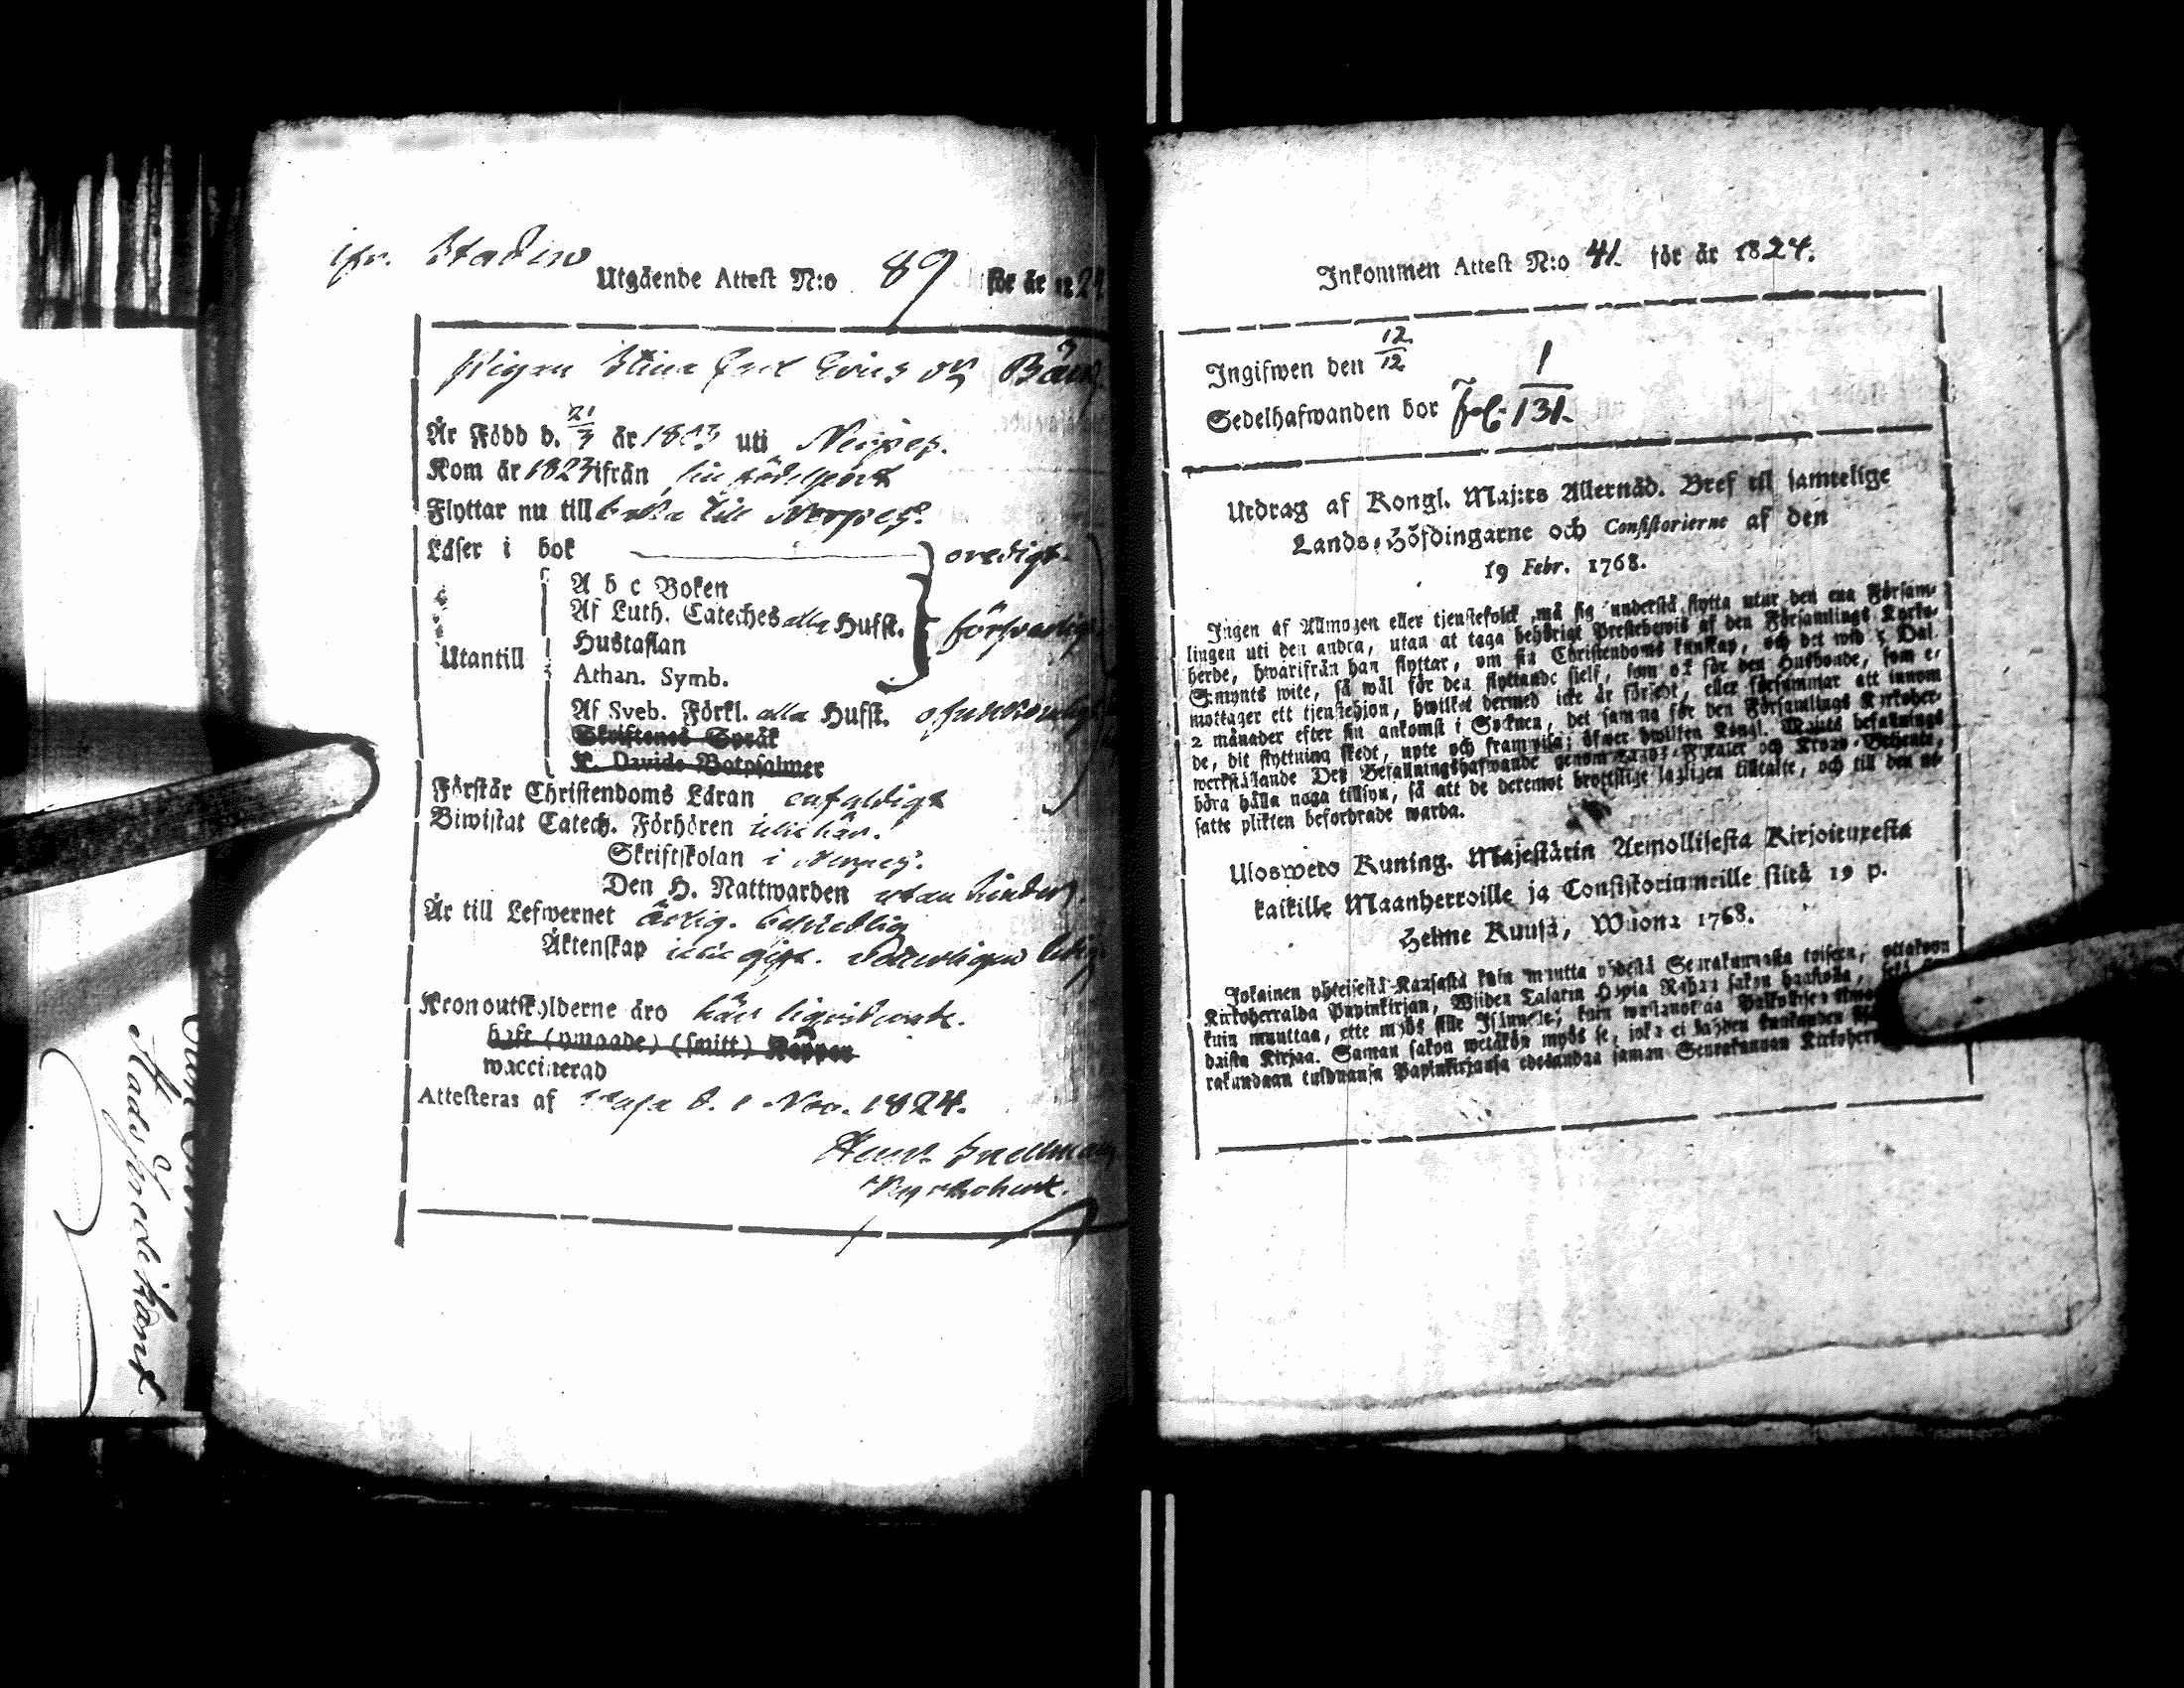 ifr. Staden
Utgående Attest N:o 89 för är 1824
Pigan Stina
Är Född d. 21/3 är 1803 uti Nerpes.
Kom är 1823 ifrån sin födelseort
Flyttar nu till baka till Nerpes.
Läser i bok oredigt.
Utantill
A b c Boken
Af Luth. Cateches alla Hufst. försvarligt
Hustaflan
Athan. Symb.
Af Sveb. Förkl. alla Hufst.
Skriftenes Språk
K. Davids Botpsalmer
Förstår Christendoms Läran enfaldigt
Biwistat Catech. Förhören icke här.
Skriftskolan i Nerpes.
Den H. Nattwarden utan hinder.
Är till Lefwernet ärlig. beskedlig
Äktenskap icke gift. veterligen ledig
Kronoutskylderne äro här liqviderade.
haft (ympade) (smitt) Koppor
waccinerad
Attesteras af Wasa d. 1 Nov. 1824.
Snellman
Kyrkoherde.
Inkommen Attest N:o 41. för är 1824.
Ingifwen den 12/12
Sedelhafwanden bor fol. 1/131.
Utdrag af Kongl. Maj:ts Allernåd. Bref till samtelige
Lands-Höfdingarne och Consistorierne af den
19 Febr. 1768.
Ingen af Allmogen eller tjenstefolck må sig understå flytta utur den ena Försam-
lingen uti den andra, utan at taga behörigt Prestebewis af den Församlings Kyrko-
herde, hwarifrån han flyttar, om sin Christendoms kunskap, och det wid 5 Dal.
S:mynts wite, så wäl för den flyttande sjelf, som ock för den Husbonde, som e-
mottager ett tjenstehjon, hwilket dermed icke är försedt, eller försummar att innom
2 månader efter sin ankomst i Socknen, det samma för den Församlings Kyrkoher-
de, dit flyttning skedt, upte och framwisa; öfwer hwilken Kongl. Maj:ts befallnings
werkställande Des Befallningshafwande genom Lands-Fiskaler och Krono-Betjente,
böra hålla noga tillsyn, så att de deremot brottslige lagligen tilltalte, och till den ut-
satte plikten befordrade warda.
Uloswето Kuning. Majestätin Armollisesta Kirjoituxesta
kaikille Maanherroille ja Consistoriumeille siitä 19 p.
Helme Kuusa, Wuona 1768.
Jokainen yhteisestä Kansasta kuin muutta yhdestä Seurakunnasta toiseen, ottakoon
Kirkoherralda Papinkirjan, Wiiden Talarin Hopia Rahan sakon haastolla,
kuin muuttaa, ette myös sille Isännelle, kuin wastanottaa Palkollisen ilman
daista Kirjaa. Saman sakon wetäkön myös se, joka ei kahden kuukauden
rakundaan tulduansa Papinkirjansa edesandaa saman Seurakunnan Kirkoherr